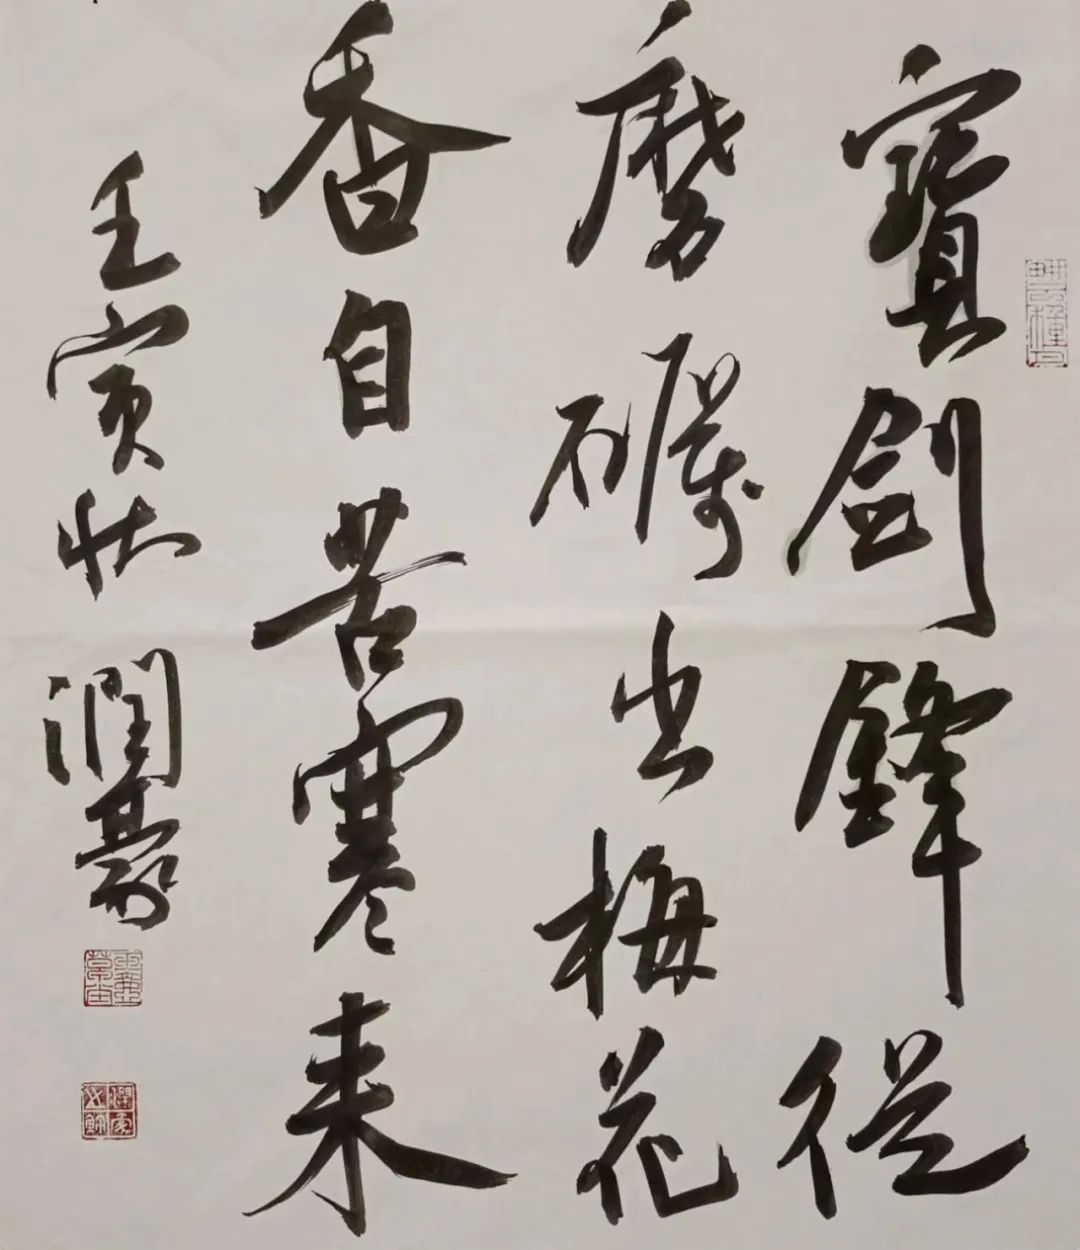 寶劍鋒從
磨礪出梅花
香自苦寒來
壬寅秋
潤豪